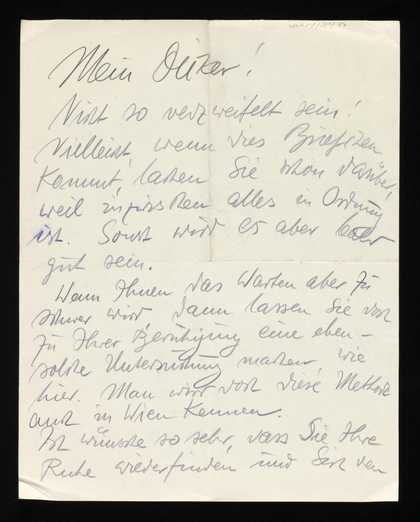 Mein Dicker!
Nicht so verzweifelt sein!
Vielleicht, wenn dies Briefchen
kommt, lachen Sie schon darüber,
weil inzwischen alles in Ordnung
ist. Sonst wird es aber
gut sein.
Wenn Ihnen das Warten aber zu
schwer wird, dann lassen Sie doch
zu Ihrer Beruhigung eine eben-
solche Untersuchung machen wie
hier. Man wird doch diese Methode
auch in Wien kennen.
Ich wünsche so sehr, dass Sie Ihre
Ruhe wiederfinden und sich den